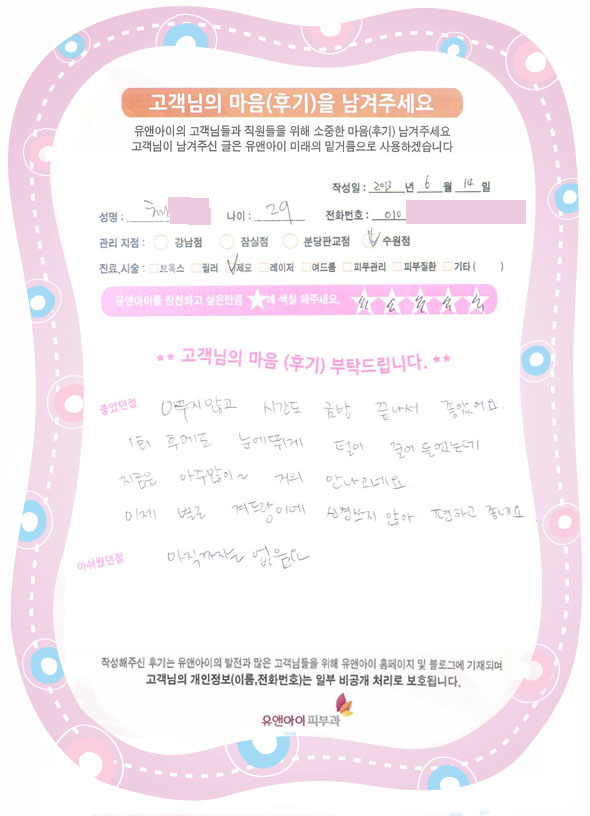 고객님의 마음(후기)을 남겨주세요
유앤아이의 고객님들과 직원들을 위해 소중한 마음(후기) 남겨주세요
고객님이 남겨주신 글은 유앤아이 미래의 밑거름으로 사용하겠습니다
작성일 : 2013 년 6 월 14 일
성명 : 나이 : 29 전화번호 : 010
관리 지점 : 강남점 잠실점 분당판교점 수원점
진료,시술 : 보톡스 필러 제모 레이저 여드름 피부관리 피부질환 기타 ( )
유앤아이를 칭찬하고 싶은만큼 ★에 색칠 해주세요.
★★ 고객님의 마음 (후기) 부탁드립니다. ★★
좋았던점 아뿌지않고 시간도 금방 끝나서 좋았어요.
1회 후에도 눈에띄게 털이 줄어 들었는데
지금은 아주많이~ 거의 안나오네요.
이제 별로 겨드랑이네 신경쓰지 않아 편하고 좋네요.
아쉬웠던점 아직까지는 없음요
작성해주신 후기는 유앤아이의 발전과 많은 고객님들을 위해 유앤아이 홈페이지 및 블로그에 기재되며
고객님의 개인정보(이름,전화번호)는 일부 비공개 처리로 보호됩니다.
유앤아이피부과